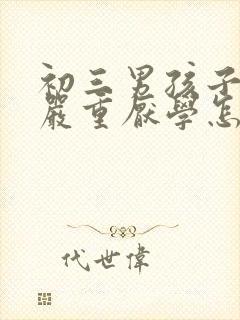 初三男孩子
嚴重厭學怎
代世偉